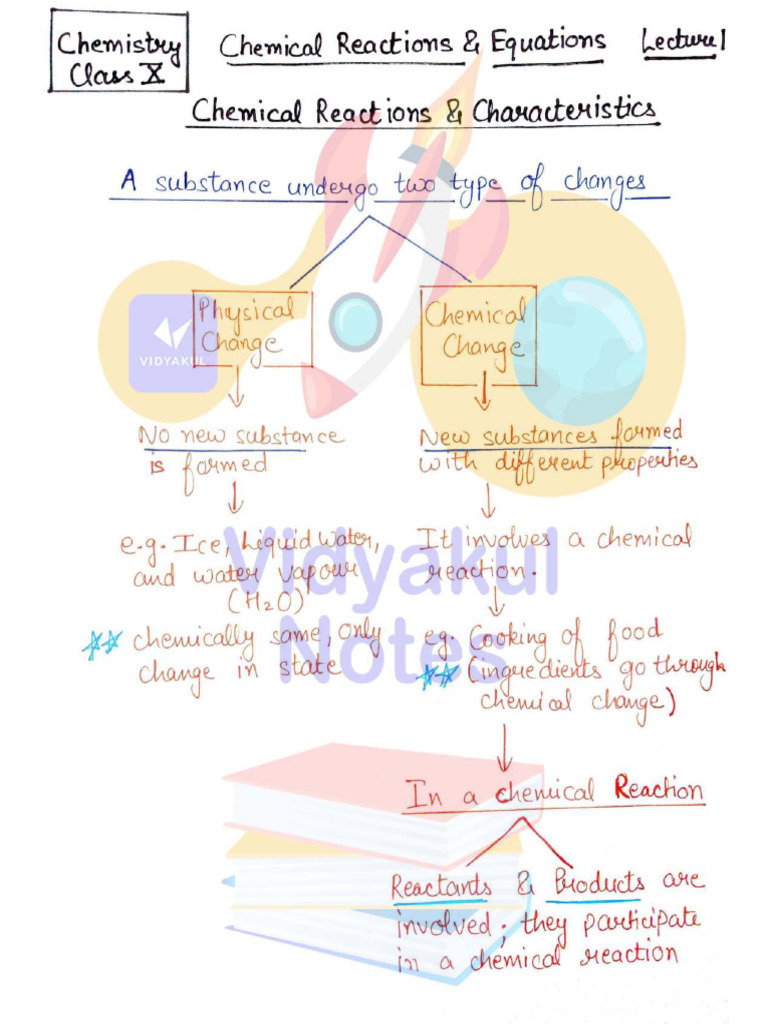 Chemistry
Class X
Chemical Reactions & Equations Lecture 1
Chemical Reactions & Characteristics
A substance undergo two type of changes
Physical
Change
Chemical
Change
VIDYAKUL
No new substance
is formed
New substances formed
with different properties
e.g. Ice, Liquid water,
and water vapour
(H2O)
It involves a chemical
reaction.
** chemically same, only
change in state
eg. Cooking of food
** (ingredients go through
chemical change)
Vidyakul
Notes
In a chemical Reaction
Reactants & Products are
involved; they participate
in a chemical reaction